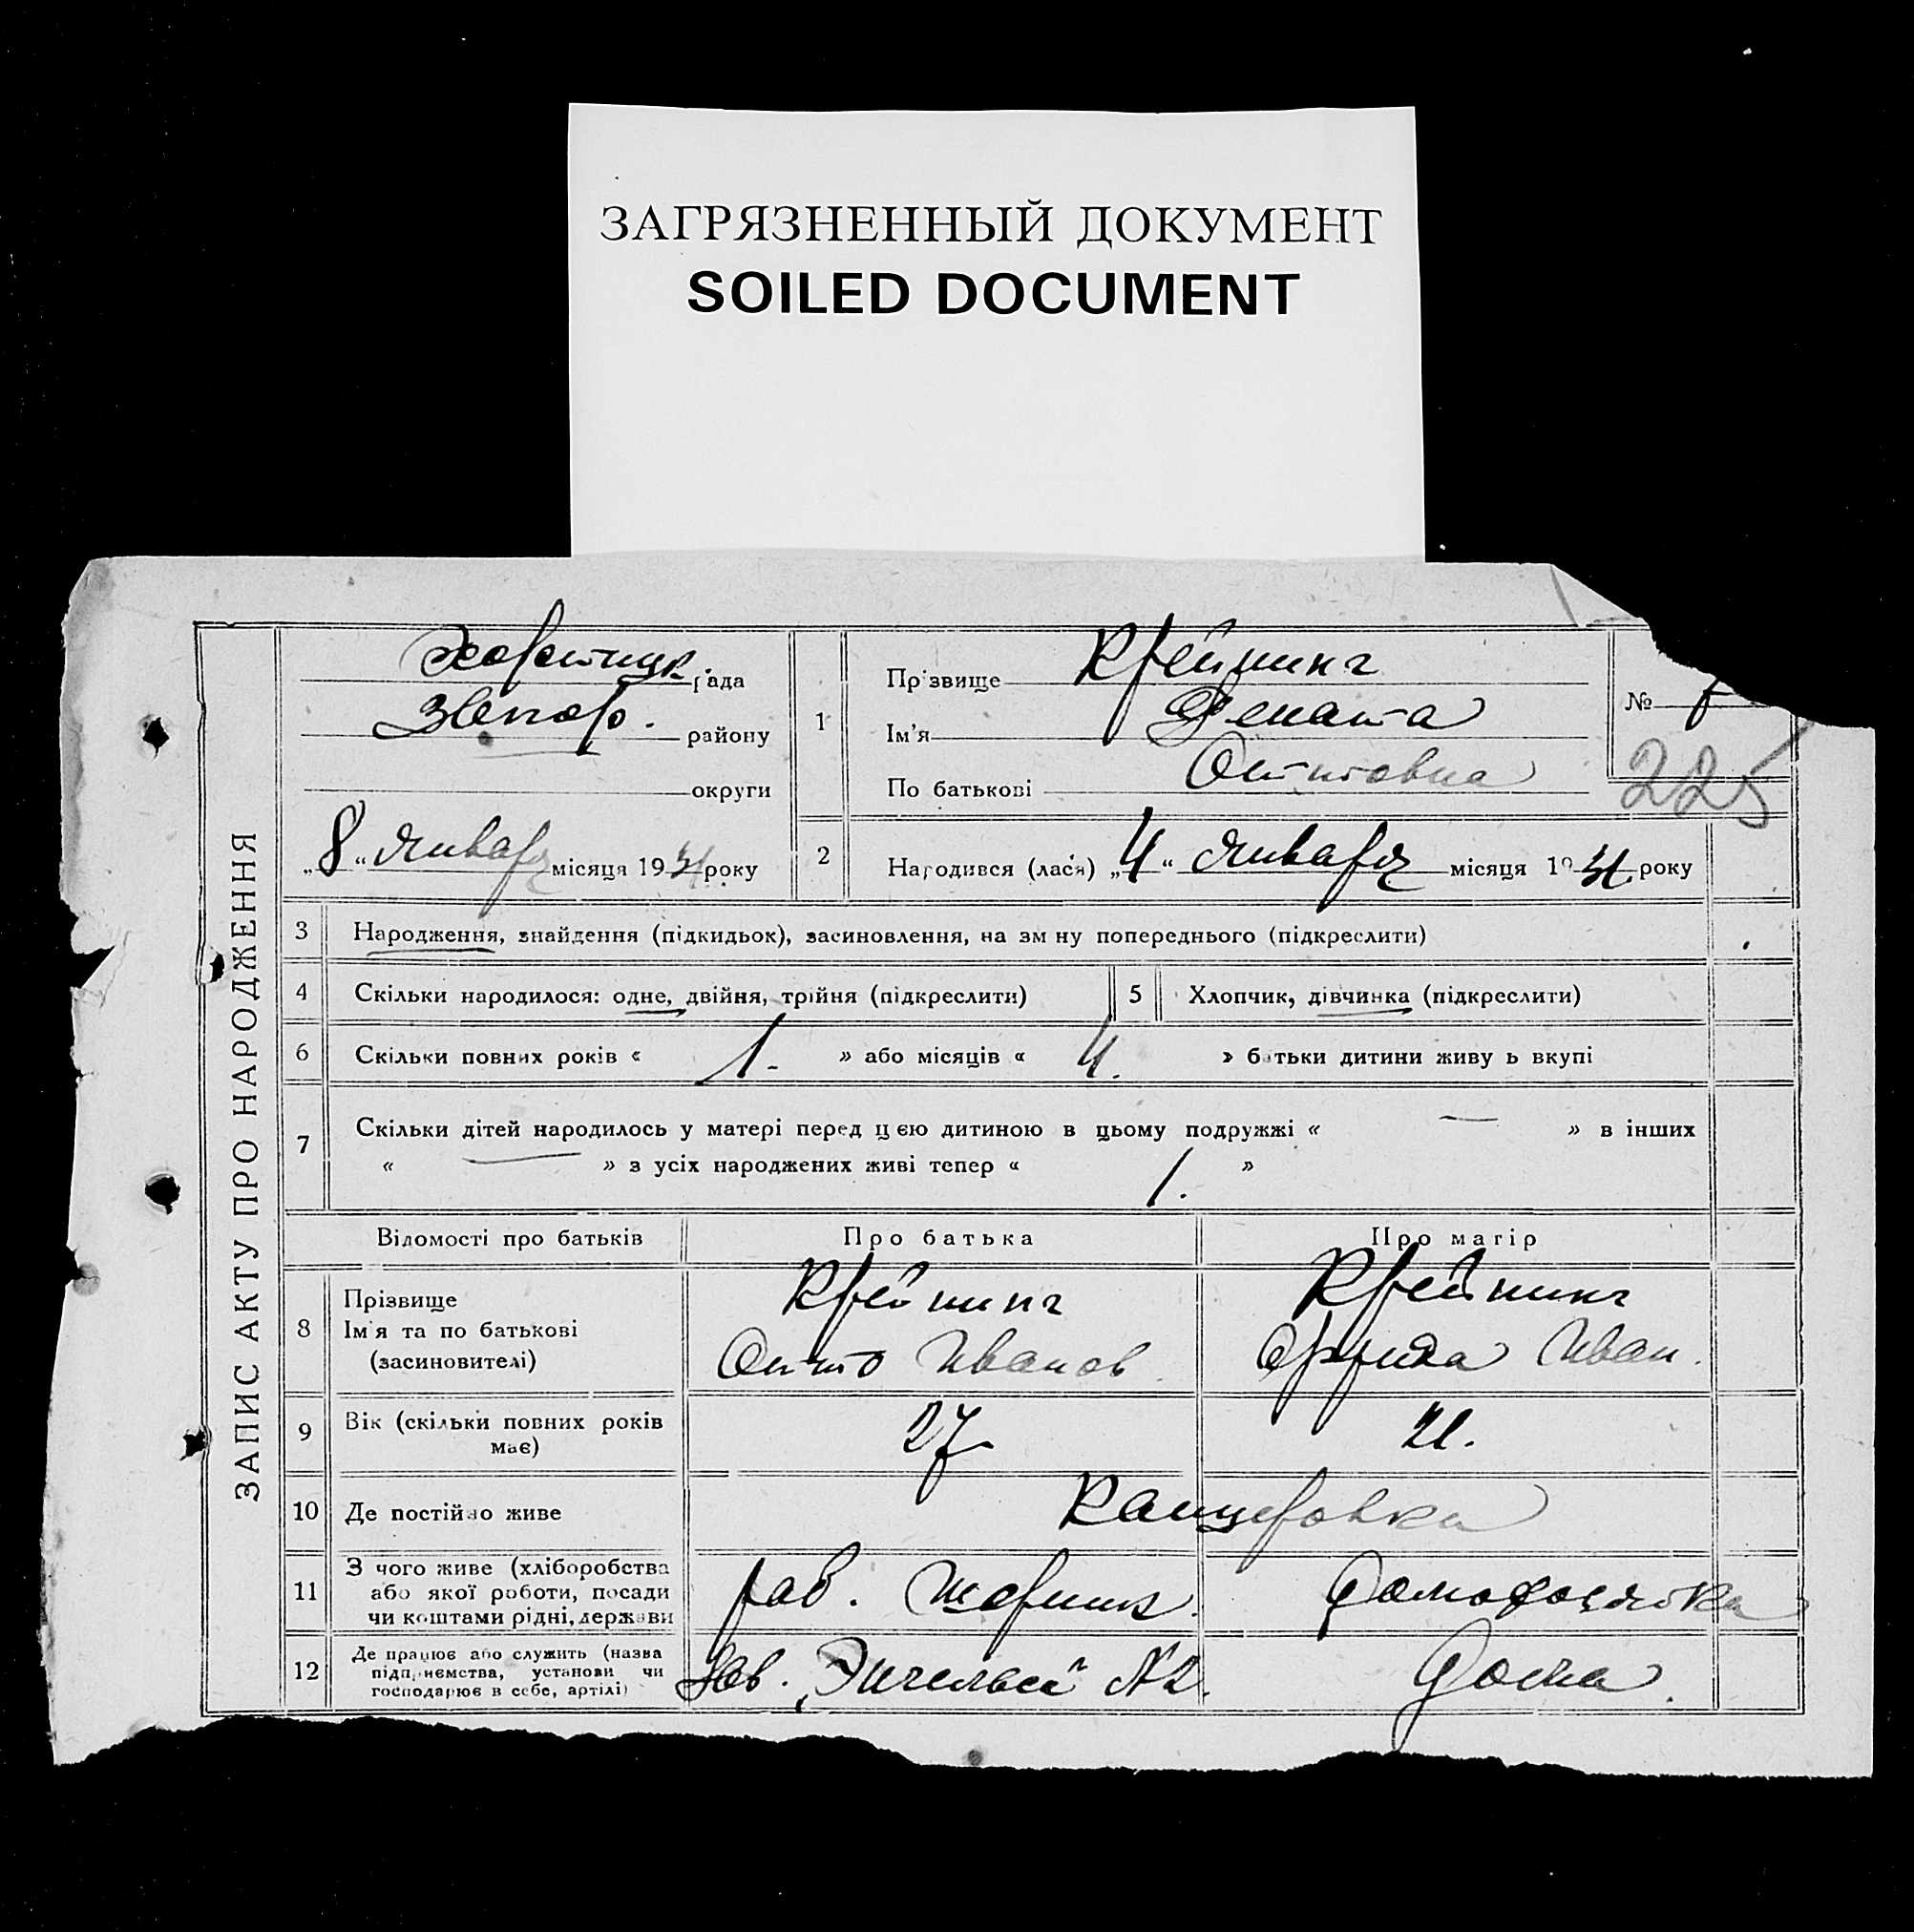 ЗАГРЯЗНЕННЫЙ ДОКУМЕНТ
SOILED DOCUMENT
ЗАПИС АКТУ ПРО НАРОДЖЕННЯ
Хортицк. рада
Запор. району
округи
„8“ Января місяця 1934 року
1
Прізвище Крейнинг
Ім'я Рената
По батькові Оттовна
№
225
2
Народився (лася) „4“ Января місяця 1934 року
3 Народження, знайдення (підкидьок), засиновлення, на зм ну попереднього (підкреслити)
4 Скільки народилося: одне, двійня, трійня (підкреслити)
5 Хлопчик, дівчинка (підкреслити)
6 Скільки повних років « 1. » або місяців « 4. » батьки дитини живу ь вкупі
7 Скільки дітей народилось у матері перед цією дитиною в цьому подружжі « — » в інших
« — » з усіх народжених живі тепер « 1. »
Відомості про батьків Про батька Про матір
8 Прізвище
Ім'я та по батькові
(засиновителі)
Крейнинг
Отто Иванов.
Крейнинг
Фрида Иван.
9 Вік (скільки повних років
має)
27
21.
10 Де постійно живе Канцеровка
11 З чого живе (хліборобства
або якої роботи, посади
чи коштами рідні, держави
раб.
домохозяйка
12 Де працює або служить (назва
підприємства, установи чи
господарює в себе, артілі)
Зав. „Энгельса" №2.
Дома.